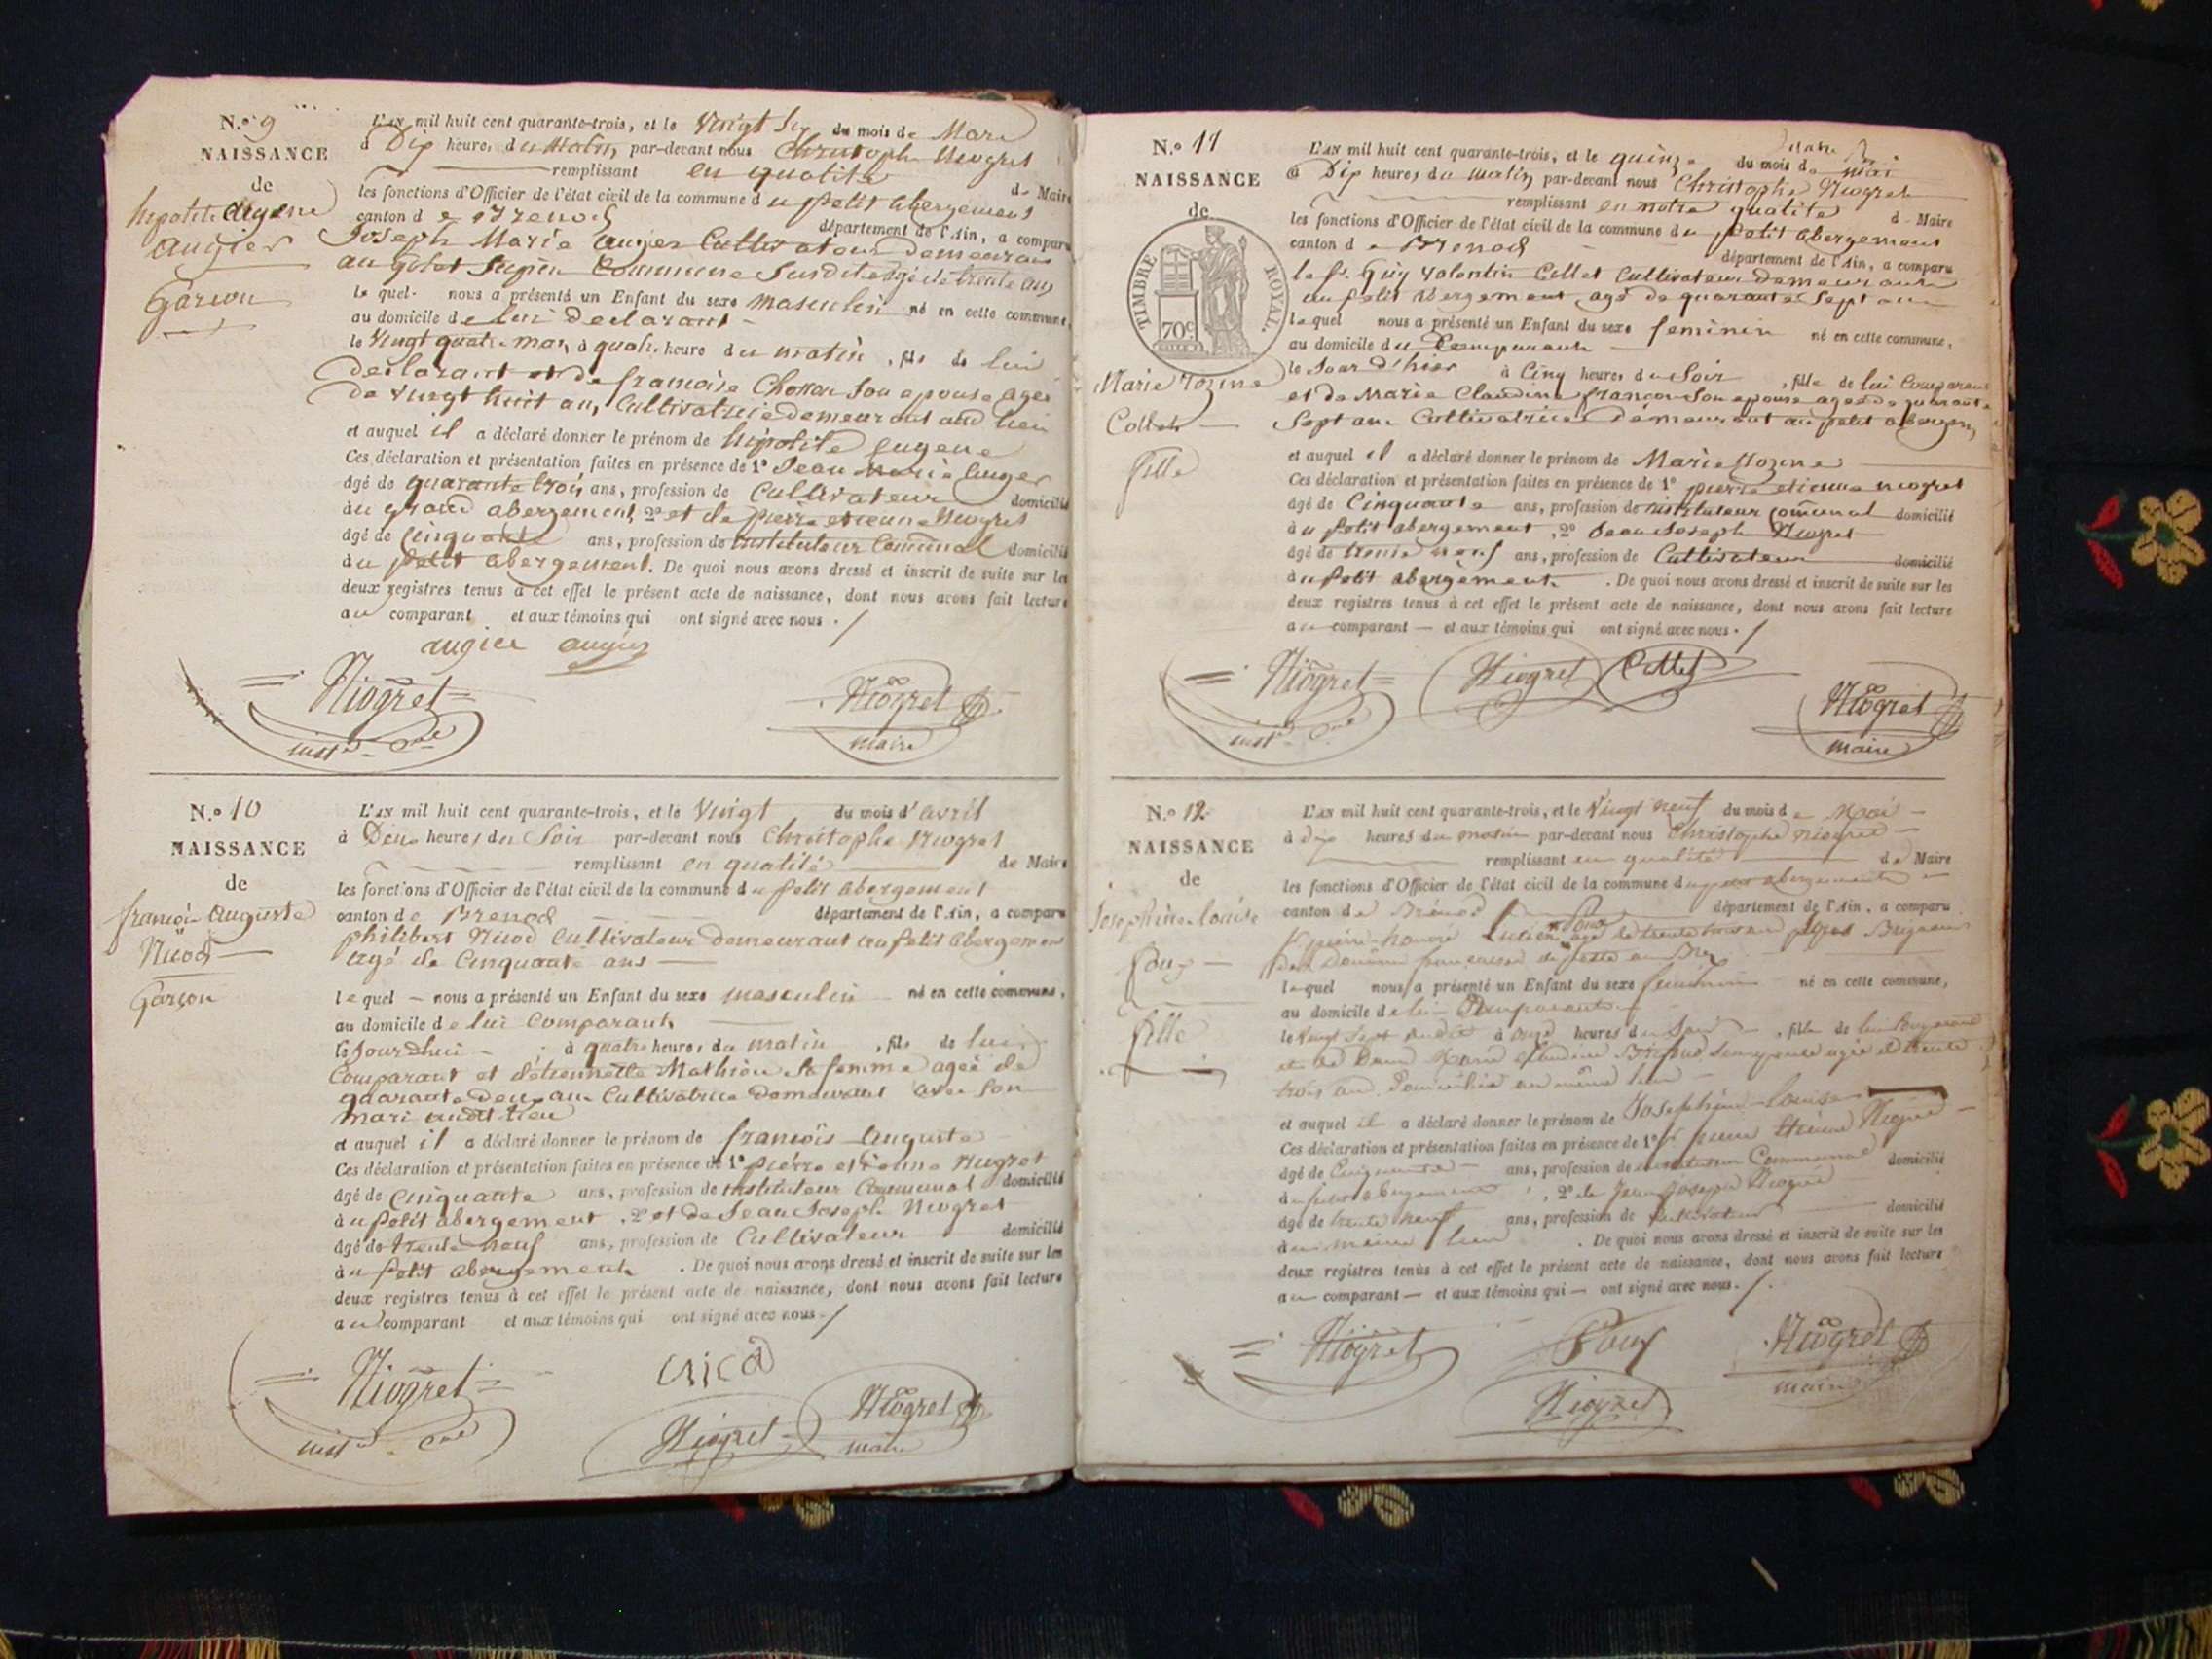 N.º 9
NAISSANCE
de
hipolite Eugene
augier
Garçon
L'AN mil huit cent quarante-trois, et le Vingt Six du mois de Mars
à Dix heures du Matin, par-devant nous Christophe Niogret
remplissant en qualité de Maire
les fonctions d'Officier de l'état civil de la commune du petit abergement
canton de Brenod département de l'Ain, a comparu
Joseph Marie augier Cultivateur demeurant
au Commune Susdite agé de trente ans
lequel nous a présenté un Enfant du sexe masculin né en cette commune,
au domicile de lui declarant
le Vingt quatre mars, à quatre heure du matin, fils de lui
declarant et de francoise son epouse agée
de vingt huit ans, Cultivatrice demeurant aud lieu
et auquel il a déclaré donner le prénom de hipolite eugene
Ces déclaration et présentation faites en présence de 1º Jean Marie augier
âgé de quarante trois ans, profession de Cultivateur domicilié
à au grand abergement, 2º et de pierre etienne Niogret
âgé de cinquante ans, profession de instituteur Comunal domicilié
à au petit abergement. De quoi nous avons dressé et inscrit de suite sur les
deux registres tenus à cet effet le présent acte de naissance, dont nous avons fait lecture
au comparant et aux témoins qui ont signé avec nous. /
augier augier
Niogret Niogret
maire
N.º 10
NAISSANCE
de
francois auguste
Nicod
Garçon
L'AN mil huit cent quarante-trois, et le Vingt du mois d'avril
à Deux heures du Soir par-devant nous Christophe Niogret
remplissant en qualité de Maire
les fonctions d'Officier de l'état civil de la commune du petit abergement
canton de Brenod département de l'Ain, a comparu
philibert Nicod Cultivateur demeurant au petit abergement
agé de Cinquante ans
lequel nous a présenté un Enfant du sexe masculin né en cette commune,
au domicile de lui Comparant
le Jourdhui à quatre heures du matin, fils de lui
Comparant et detiennette Mathieu sa femme agée de
quarante deux ans Cultivatrice demeurant avec son
mari audit lieu
et auquel il a déclaré donner le prénom de francois Auguste
Ces déclaration et présentation faites en présence de 1º pierre etienne Niogret
âgé de Cinquante ans, profession de instituteur Communal domicilié
à au petit abergement, 2º et de Jean Joseph Niogret
âgé de trente neuf ans, profession de Cultivateur domicilié
à au petit abergement. De quoi nous avons dressé et inscrit de suite sur les
deux registres tenus à cet effet le présent acte de naissance, dont nous avons fait lecture
au comparant et aux témoins qui ont signé avec nous. /
Niogret nicod
Niogret Niogret
maire
N.º 11
NAISSANCE
de
TIMBRE ROYAL.
70c
Marie Rozine
Collet
fille
L'AN mil huit cent quarante-trois, et le quinze du mois de mai
à Dix heures du matin par-devant nous Christophe Niogret
remplissant en notre qualité de Maire
les fonctions d'Officier de l'état civil de la commune du petit abergement
canton de Brenod département de l'Ain, a comparu
le Sr. Guy Valentin Collet Cultivateur demeurant
au petit abergement, agé de quarante Sept ans
lequel nous a présenté un Enfant du sexe feminin né en cette commune,
au domicile du Comparant
le Jour d'hier à Cinq heures du Soir, fille de lui Comparant
et de Marie Claudine francon Son epouse agée de quarante
Sept ans Cultivatrice demeurant au petit abergem
et auquel il a déclaré donner le prénom de Marie Rozine
Ces déclaration et présentation faites en présence de 1º pierre etienne niogret
âgé de Cinquante ans, profession de instituteur comunal domicilié
à au petit abergement, 2º Jean Joseph Niogret
âgé de trente neuf ans, profession de Cultivateur domicilié
à au petit abergement. De quoi nous avons dressé et inscrit de suite sur les
deux registres tenus à cet effet le présent acte de naissance, dont nous avons fait lecture
au comparant et aux témoins qui ont signé avec nous. /
Niogret Niogret Collet
Niogret
maire
N.º 12
NAISSANCE
de
Josephine louise
Pouy
fille
L'AN mil huit cent quarante-trois, et le Vingt neuf du mois de Mai
à dix heures du matin par-devant nous Christophe niogret
remplissant en qualité de Maire
les fonctions d'Officier de l'état civil de la commune du petit abergement
canton de Brénod département de l'Ain, a comparu
Sr pierre honoré Lucien agé de trente
lequel nous a présenté un Enfant du sexe feminin né en cette commune,
au domicile de lui Comparant
le vingt sept dudit à onze heures du Soir, fille de lui Comparant
et de Dame Marie Claudine son epouse agée de trente
trois ans Domiciliée au même lieu
et auquel il a déclaré donner le prénom de Josephine louise
Ces déclaration et présentation faites en présence de 1º Sr pierre Etienne Niogret
âgé de Cinquante ans, profession de instituteur Communal domicilié
à au petit abergement, 2º de Jean Joseph Niogret
âgé de trente neuf ans, profession de cultivateur domicilié
à au même lieu. De quoi nous avons dressé et inscrit de suite sur les
deux registres tenus à cet effet le présent acte de naissance, dont nous avons fait lecture
au comparant et aux témoins qui ont signé avec nous. /.
Niogret Pouy Niogret
Niogret maire